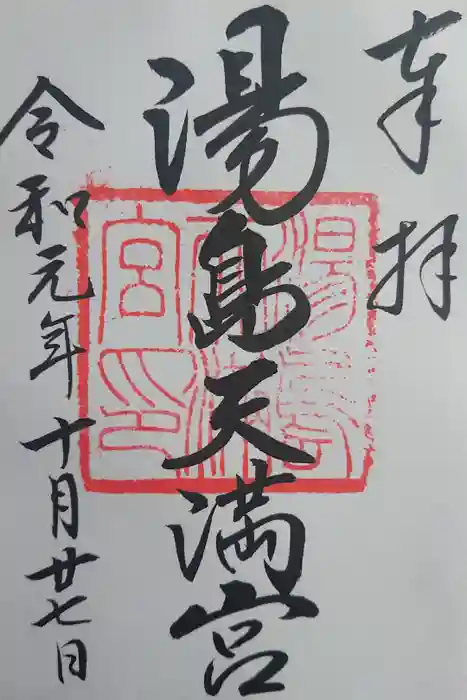 奉拝
湯島天満宮
湯島天満宮印
令和元年十月廿七日